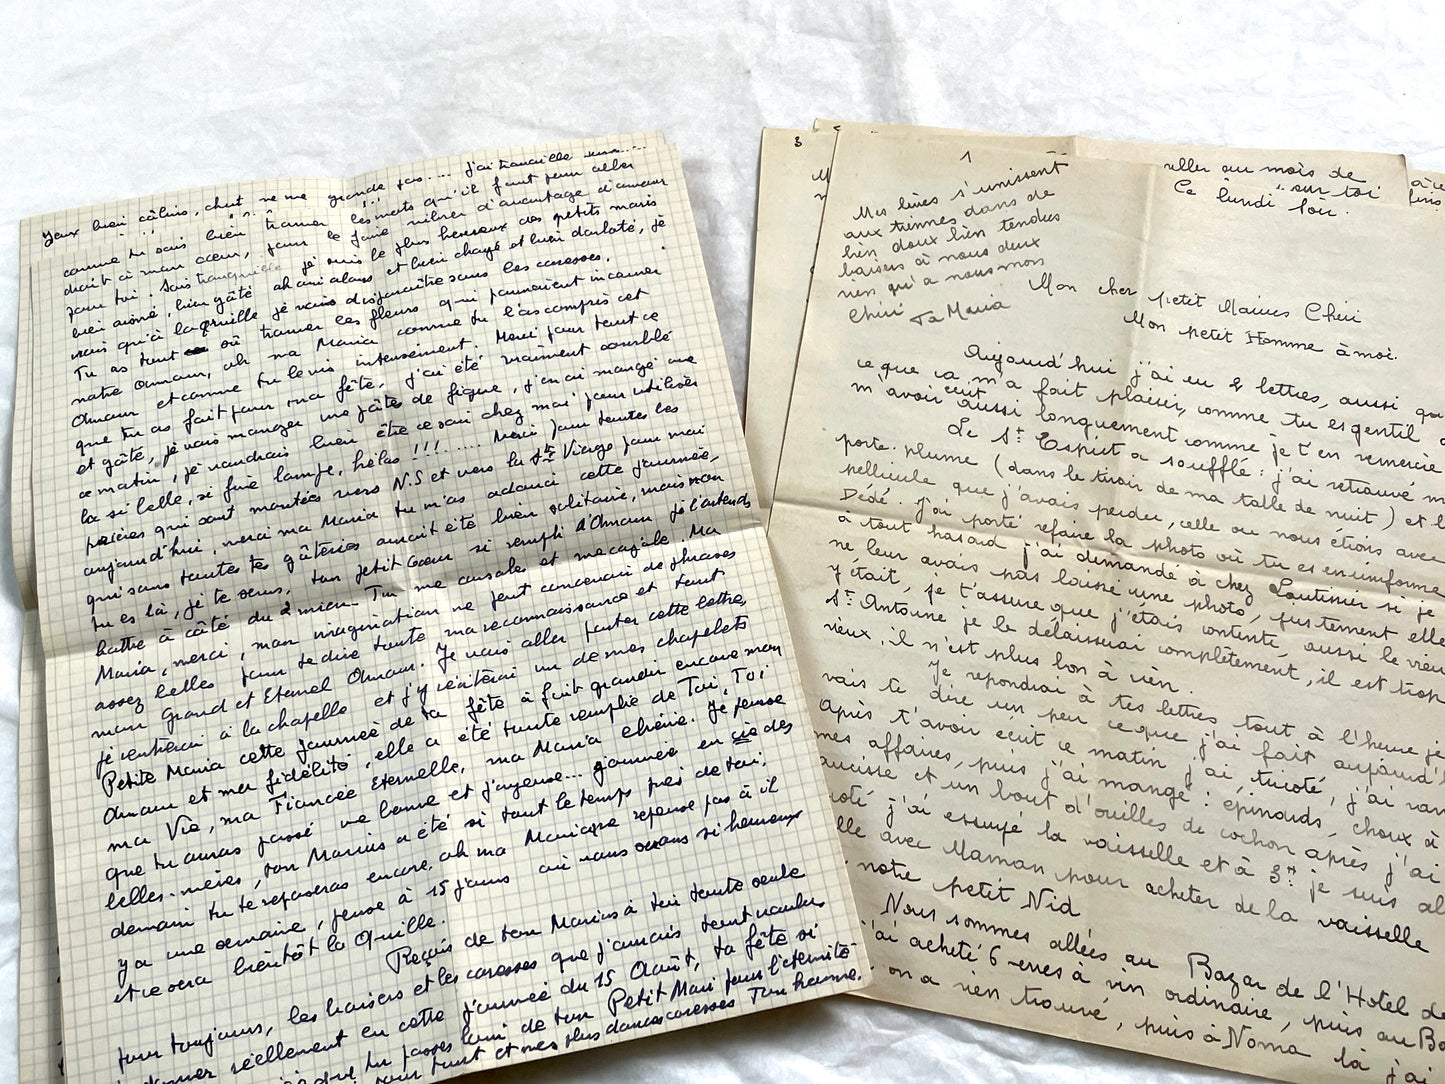 yeux bien câlins, chut ne me gronde pas.... j'ai tranquille
comme tu sais bien trouver les mots qu'il faut pour aller
droit à mon cœur, pour le faire vibrer d'avantage d'amour
pour toi. Sois tranquille je suis le plus heureux des petits maris
bien aimé, bien gâté et bien choyé et bien dorloté, je
vrais qu'à la quille je vais disparaître sous les caresses.
Tu as tout où trouver les fleurs qui pouvaient incarner
notre Amour, oh ma Maria comme tu l'as compris cet
Amour et comme tu le vis intensément. Merci pour tout ce
que tu as fait pour ma fête, j'ai été vraiment comblé
et gâté, je vais manger une pâtes de figue, j'en ai mangé une
ce matin, je voudrais bien être ce soir chez moi pour utiliser
la si belle, si fine lampe, hélas !!! .... Merci pour toutes les
prières qui sont montées vers N.S et vers la Ste Vierge pour moi
aujourd'hui, merci ma Maria tu m'as adouci cette journée,
qui sans toutes tes gâteries aurait été bien solitaire, mais non
tu es là, je te sens, ton petit Cœur si rempli d'Amour je l'entends
battre à côté du mien. Tu me consoles et me cajole. Ma
Maria, merci, mon imagination ne peut concevoir de phrases
assez belles pour te dire toute ma reconnaissance et tout
mon Grand et Eternel Amour. Je vais aller porter cette lettre,
je rentrerai à la chapelle et j'y réciterai un de mes chapelets
Petite Maria cette journée de ta fête à fait grandir encore mon
Amour et ma fidélité, elle a été toute remplie de Toi, Toi
ma Vie, ma Fiancée Eternelle, ma Maria chérie. Je pense
que tu auras passé une bonne et joyeuse... journée en cie des
belles-mères, ton Marius a été si tout le temps près de toi,
demain tu te reposeras encore, oh ma Maria repose pas à il
y a une semaine, pense à 15 jours où nous serons si heureux
et ce sera bientôt la Quille.
Reçois de ton Marius à toi toute seule
pour toujours, les baisers et les caresses que j'aurais tant voulu
donner réellement en cette journée du 15 Août, ta fête si
que tu passes loin de ton Petit Mari pour l'éternité
pour tout et mes plus douces caresses Ton homme.
3
1
aller au mois de
sur toi
Ce lundi soir.
Mes lèvres s'unissent
aux tiennes dans de
bien doux bien tendres
baisers à nous deux
rien qu'à nous mon
Chéri Ta Maria
Mon cher petit Marius Chéri
Mon petit Homme à moi.
Aujourd'hui j'ai eu 2 lettres, aussi
ce que ça m'a fait plaisir, comme tu es gentil
m'avoir écrit aussi longuement comme je t'en remercie
Le St Esprit a soufflé : j'ai retrouvé
porte-plume (dans le tiroir de ma table de nuit) et
pellicule que j'avais perdue, celle où nous étions avec
Dédé. J'ai porté refaire la photo où tu es en uniforme
à tout hasard j'ai demandé à chez si je
ne leur avais pas laissé une photo, justement elle
y était, je t'assure que j'étais contente, aussi le vieux
St Antoine je le délaisserai complètement, il est trop
vieux, il n'est plus bon à rien.
Je répondrai à tes lettres tout à l'heure je
vais te dire un peu ce que j'ai fait aujourd'
Après t'avoir écrit ce matin j'ai tricoté, j'ai
mes affaires, puis j'ai mangé : épinards, choux à
saucisse et un bout d'ouilles de cochon après j'ai
j'ai essuyé la vaisselle et à 3H je suis
avec Maman pour acheter de la vaisselle
notre petit Nid
Nous sommes allées au Bazar de l'Hotel de
j'ai acheté 6 verres à vin ordinaire, puis au
on a rien trouvé, puis à Noma là j'ai